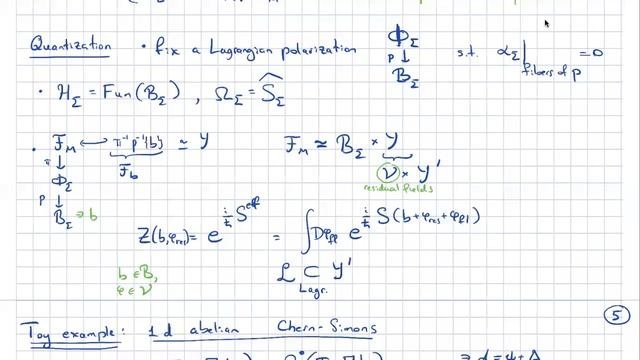 Quantization • fix a Lagrangian polarization Φ_Σ p↓ B_Σ s.t. α_Σ|_{fibers of p} = 0
• H_Σ = Fun(B_Σ) , Ω_Σ = \widehat{S_Σ}
• F_M ⟵ π⁻¹p⁻¹{b} ≃ Y F_M ≃ B_Σ × Y
π↓ F_b V × Y'
Φ_Σ residual fields
p↓
B_Σ ∋ b
Z(b,φ_res) = e^{i/ħ S^{eff}} = ∫ Dφ_fl e^{i/ħ S(b+φ_res+φ_fl)}
b ∈ B, L ⊂ Y'
φ ∈ V Lagr.
5
Toy example: 1d abelian Chern-Simons